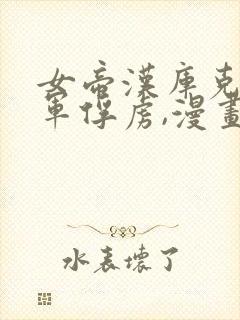 女帝漢庫克
軍俘虏,漫畫
水表壞了